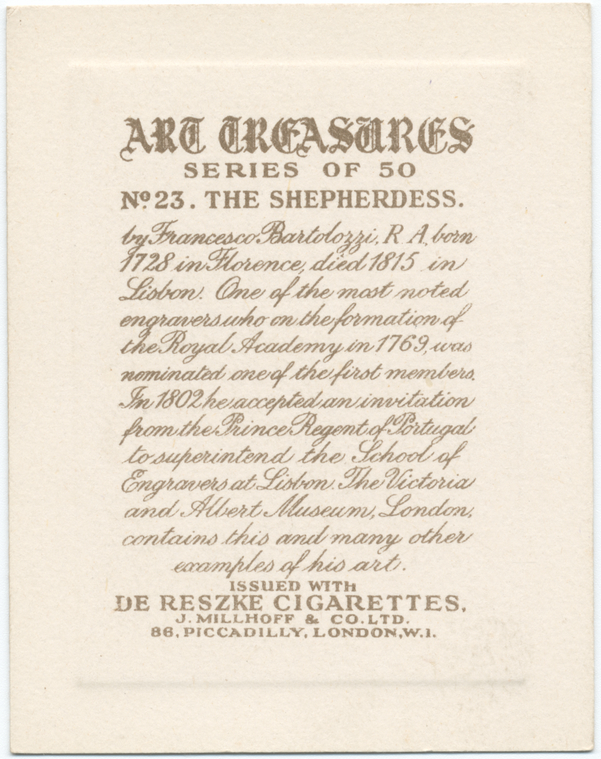 ART TREASURES
SERIES OF 50
Nº 23. THE SHEPHERDESS.
by Francesco Bartolozzi, R. A. born
1728 in Florence, died 1815 in
Lisbon. One of the most noted
engravers who on the formation of
the Royal Academy in 1769, was
nominated one of the first members.
In 1802 he accepted an invitation
from the Prince Regent of Portugal
to superintend the School of
Engravers at Lisbon. The Victoria
and Albert Museum, London,
contains this and many other
examples of his art.
ISSUED WITH
DE RESZKE CIGARETTES,
J. MILLHOFF & CO. LTD.
86, PICCADILLY, LONDON, W.1.